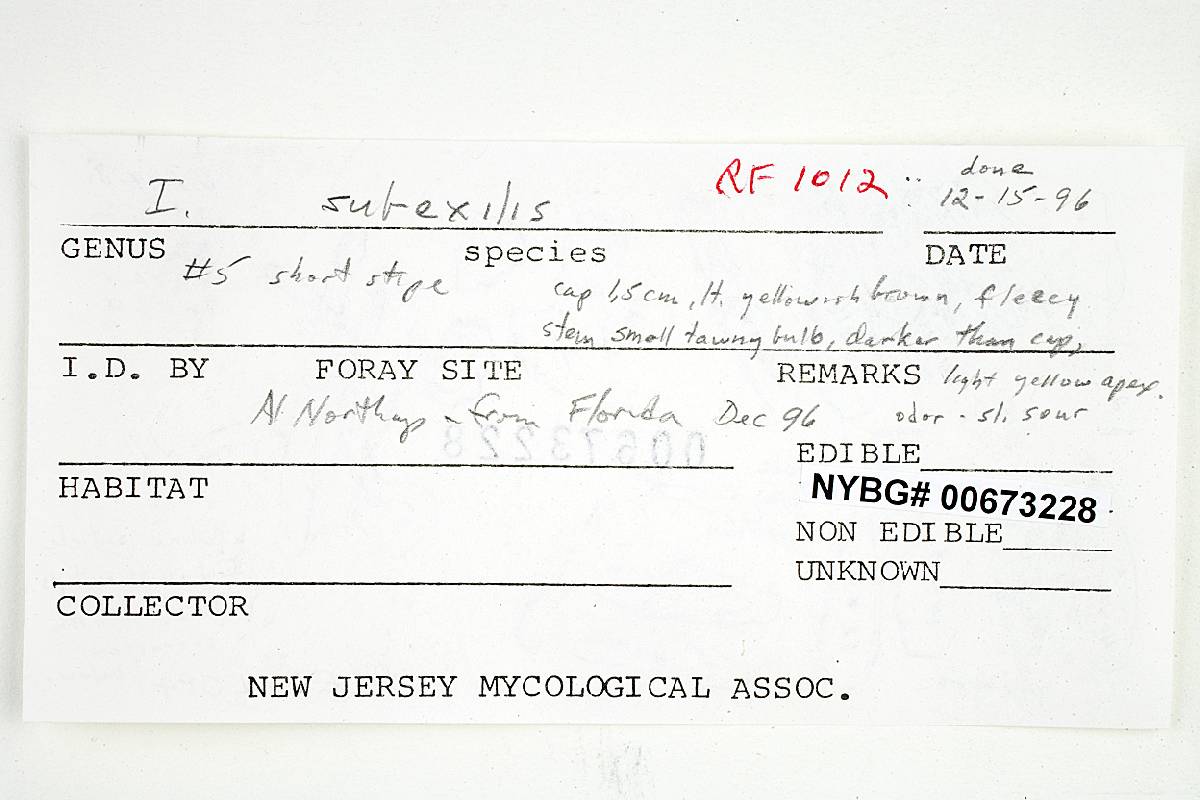 RF 1012 done
I. subexilis 12-15-96
GENUS species DATE
#5 short stipe cap 1,5 cm, lt. yellowish brown, fleecy
stem small tawny bulb, darker than cap,
I.D. BY FORAY SITE REMARKS light yellow apex.
Al Northup - from Florida Dec 96 odor - sl. sour
EDIBLE
HABITAT NYBG# 00673228
NON EDIBLE
UNKNOWN
COLLECTOR
NEW JERSEY MYCOLOGICAL ASSOC.